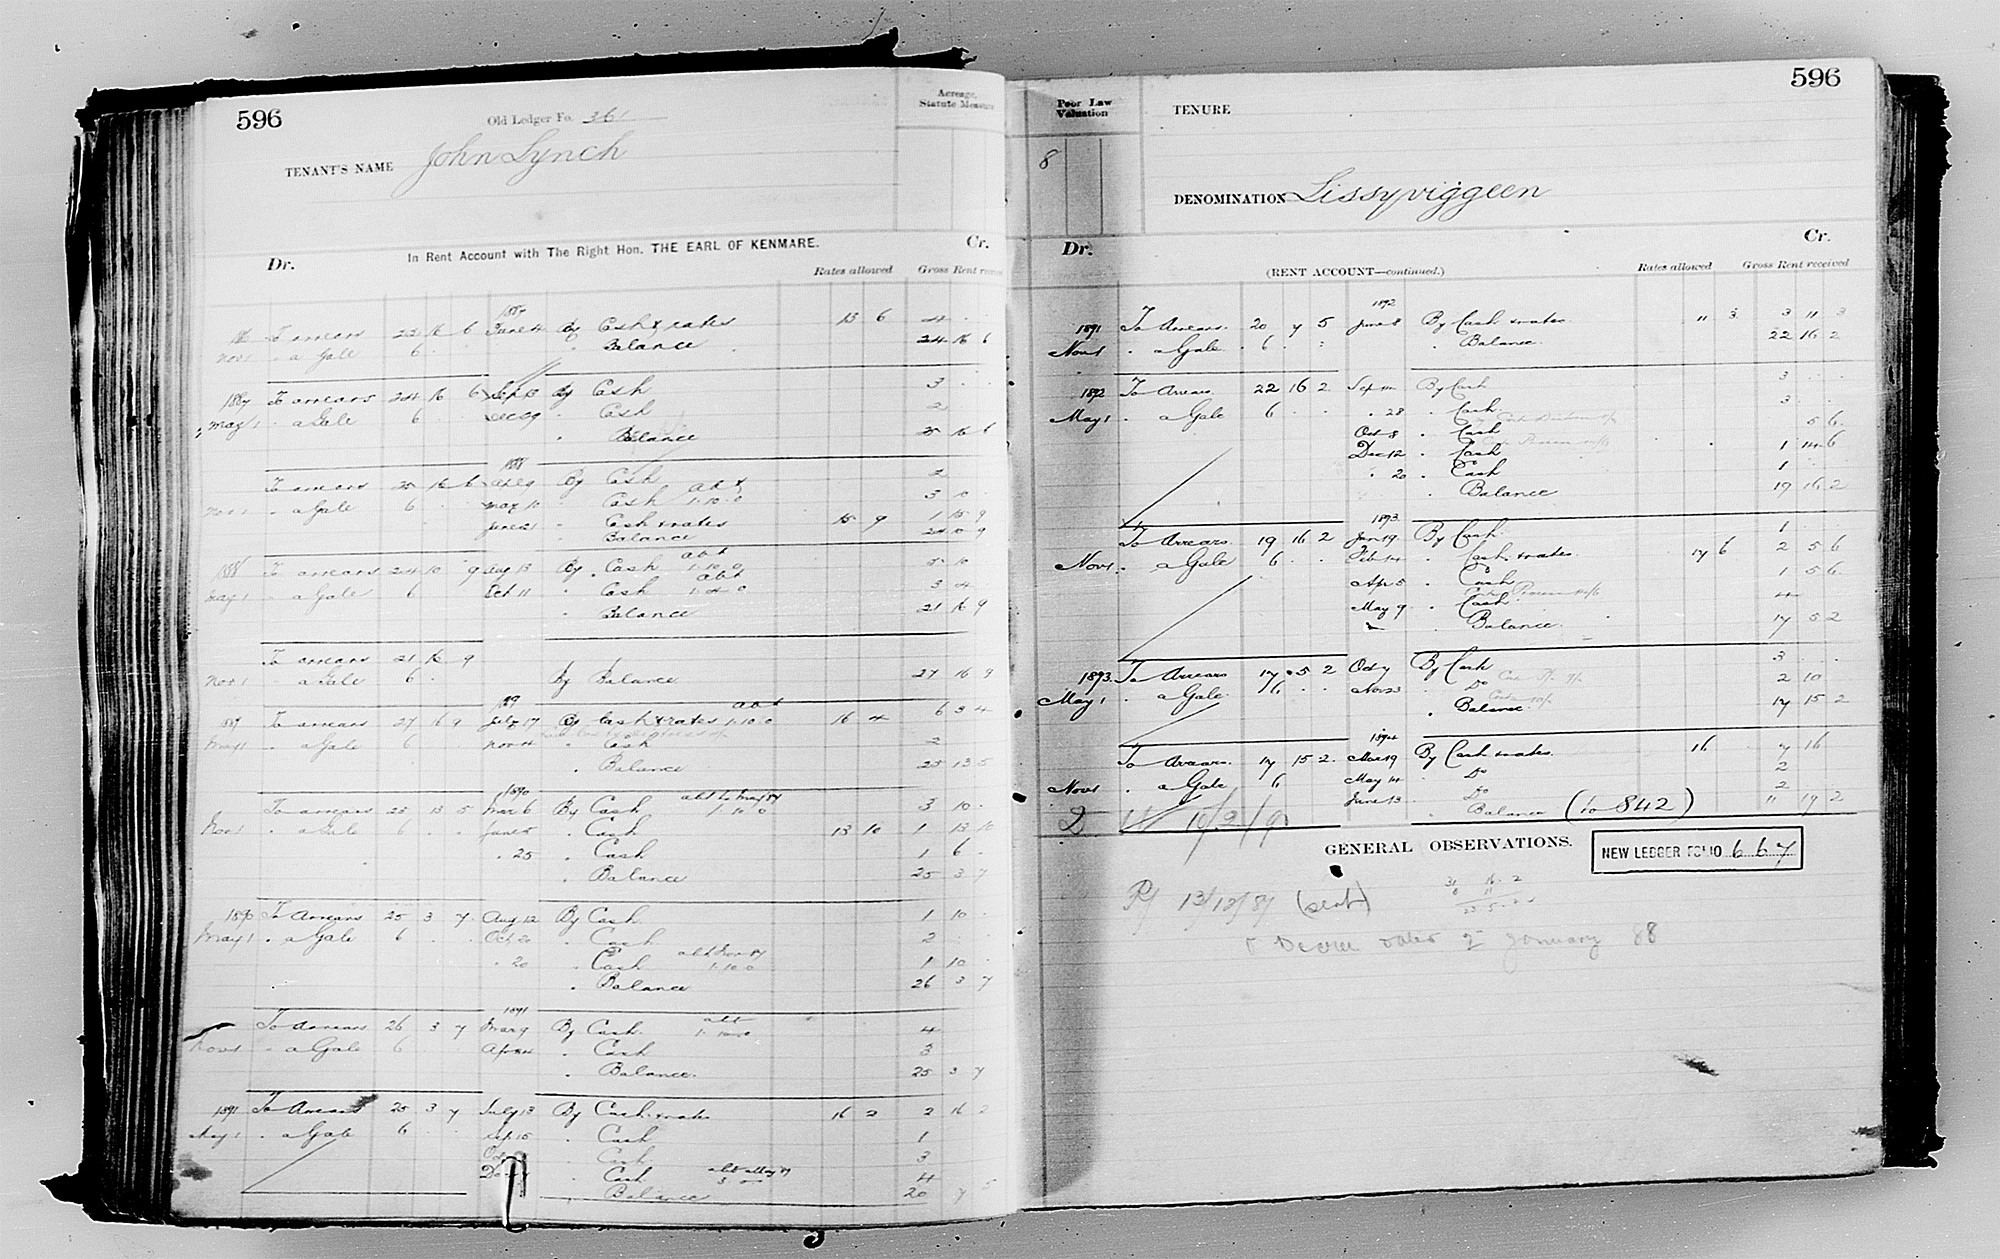 596
Old Ledger Fo. 361
Acreage, Statute Measure
TENANT'S NAME John Lynch
In Rent Account with The Right Hon. THE EARL OF KENMARE.
Dr. Cr.
Rates allowed Gross Rent
1887
To arrears 22 16 6 June 4 By Cash & rates 13 6 4 . .
Nov 1 " a Gale 6 . . " Balance 24 16 6
1887 To arrears 24 16 6 Sep 13 By Cash 3 . .
May 1 " a Gale 6 Dec 29 " Cash 2
" Balance 25 16 6
1888
To arrears 25 16 6 By Cash 2
Nov 1 " a Gale 6 May 10 " Cash abt 1.10.0 3 10
June 21 " Cash & rates 15 9 1 15 9
Balance 24 10 9
1888 To arrears 24 10 9 Aug 13 By Cash abt 1.10.0 5 10
May 1 " a Gale 6 Oct 11 " Cash abt 3 4
" Balance 21 16 9
To arrears 21 16 9
Nov 1 " a Gale 6 By Balance 27 16 9
1889
To arrears 27 16 9 July 17 By Cash & rates abt 1.10.0 16 4 6 3 4
May 1 " a Gale 6 Nov 4 " Cash 2
" Balance 25 13 5
1890
To arrears 25 13 5 Mar 6 By Cash abt to May 89 1.10.0 3 10
Nov 1 " a Gale 6 June 5 " Cash 13 10 1 13 10
" 25 " Cash 1 6
" Balance 25 3 7
1890 To Arrears 25 3 7 Aug 12 By Cash 1 10
May 1 " a Gale 6 Oct 20 " Cash 2
" 20 " Cash abt Nov 89 1.10.0 1 10
" Balance 26 3 7
1891
To Arrears 26 3 7 By Cash abt 1.10.0 4
Nov 1 " a Gale 6 " Cash 3
" Balance 25 3 7
1891 To Arrears 25 3 7 July 13 By Cash & rates 16 2 2 16 2
May 1 " a Gale 6 Sep 15 " Cash 1
" Cash 3
" Cash 4
" Balance 20 7 5
596
Poor Law Valuation
TENURE
8
DENOMINATION Lissyviggeen
Dr. Cr.
(RENT ACCOUNT—continued.)
Rates allowed Gross Rent received
1892
1891 To Arrears 20 7 5 June 8 By Cash & rates 11 3 3 11 3
Nov 1 " a Gale 6 " Balance 22 16 2
1892 To Arrears 22 16 2 By Cash 3
May 1 " a Gale 6 " 28 " Cash 3
Oct 8 " Cash 5 6
Dec 12 " Cash 1 14 6
" 20 " Cash 1
" Balance 19 16 2
1893
To Arrears 19 16 2 Jan 19 By Cash 1
Nov 1 " a Gale 6 Feb 14 " Cash & rates 17 6 2 5 6
Apr 5 " Cash 1 5 6
May 9 " Cash 4
" Balance 17 5 2
1893 To Arrears 17 5 2 Oct 7 By Cash 3
May 1 " a Gale 6 Nov 23 " Do 2 10
" Balance 17 15 2
1894
To Arrears 17 15 2 Mar 19 By Cash & rates 16 7 16
Nov 1 " a Gale 6 May 14 " Do 2
June 13 " Do 2
" Balance (to 842) 11 19 2
GENERAL OBSERVATIONS.
NEW LEDGER FOLIO 667
13/12/87 (sent)
Decree dated 2 January 88